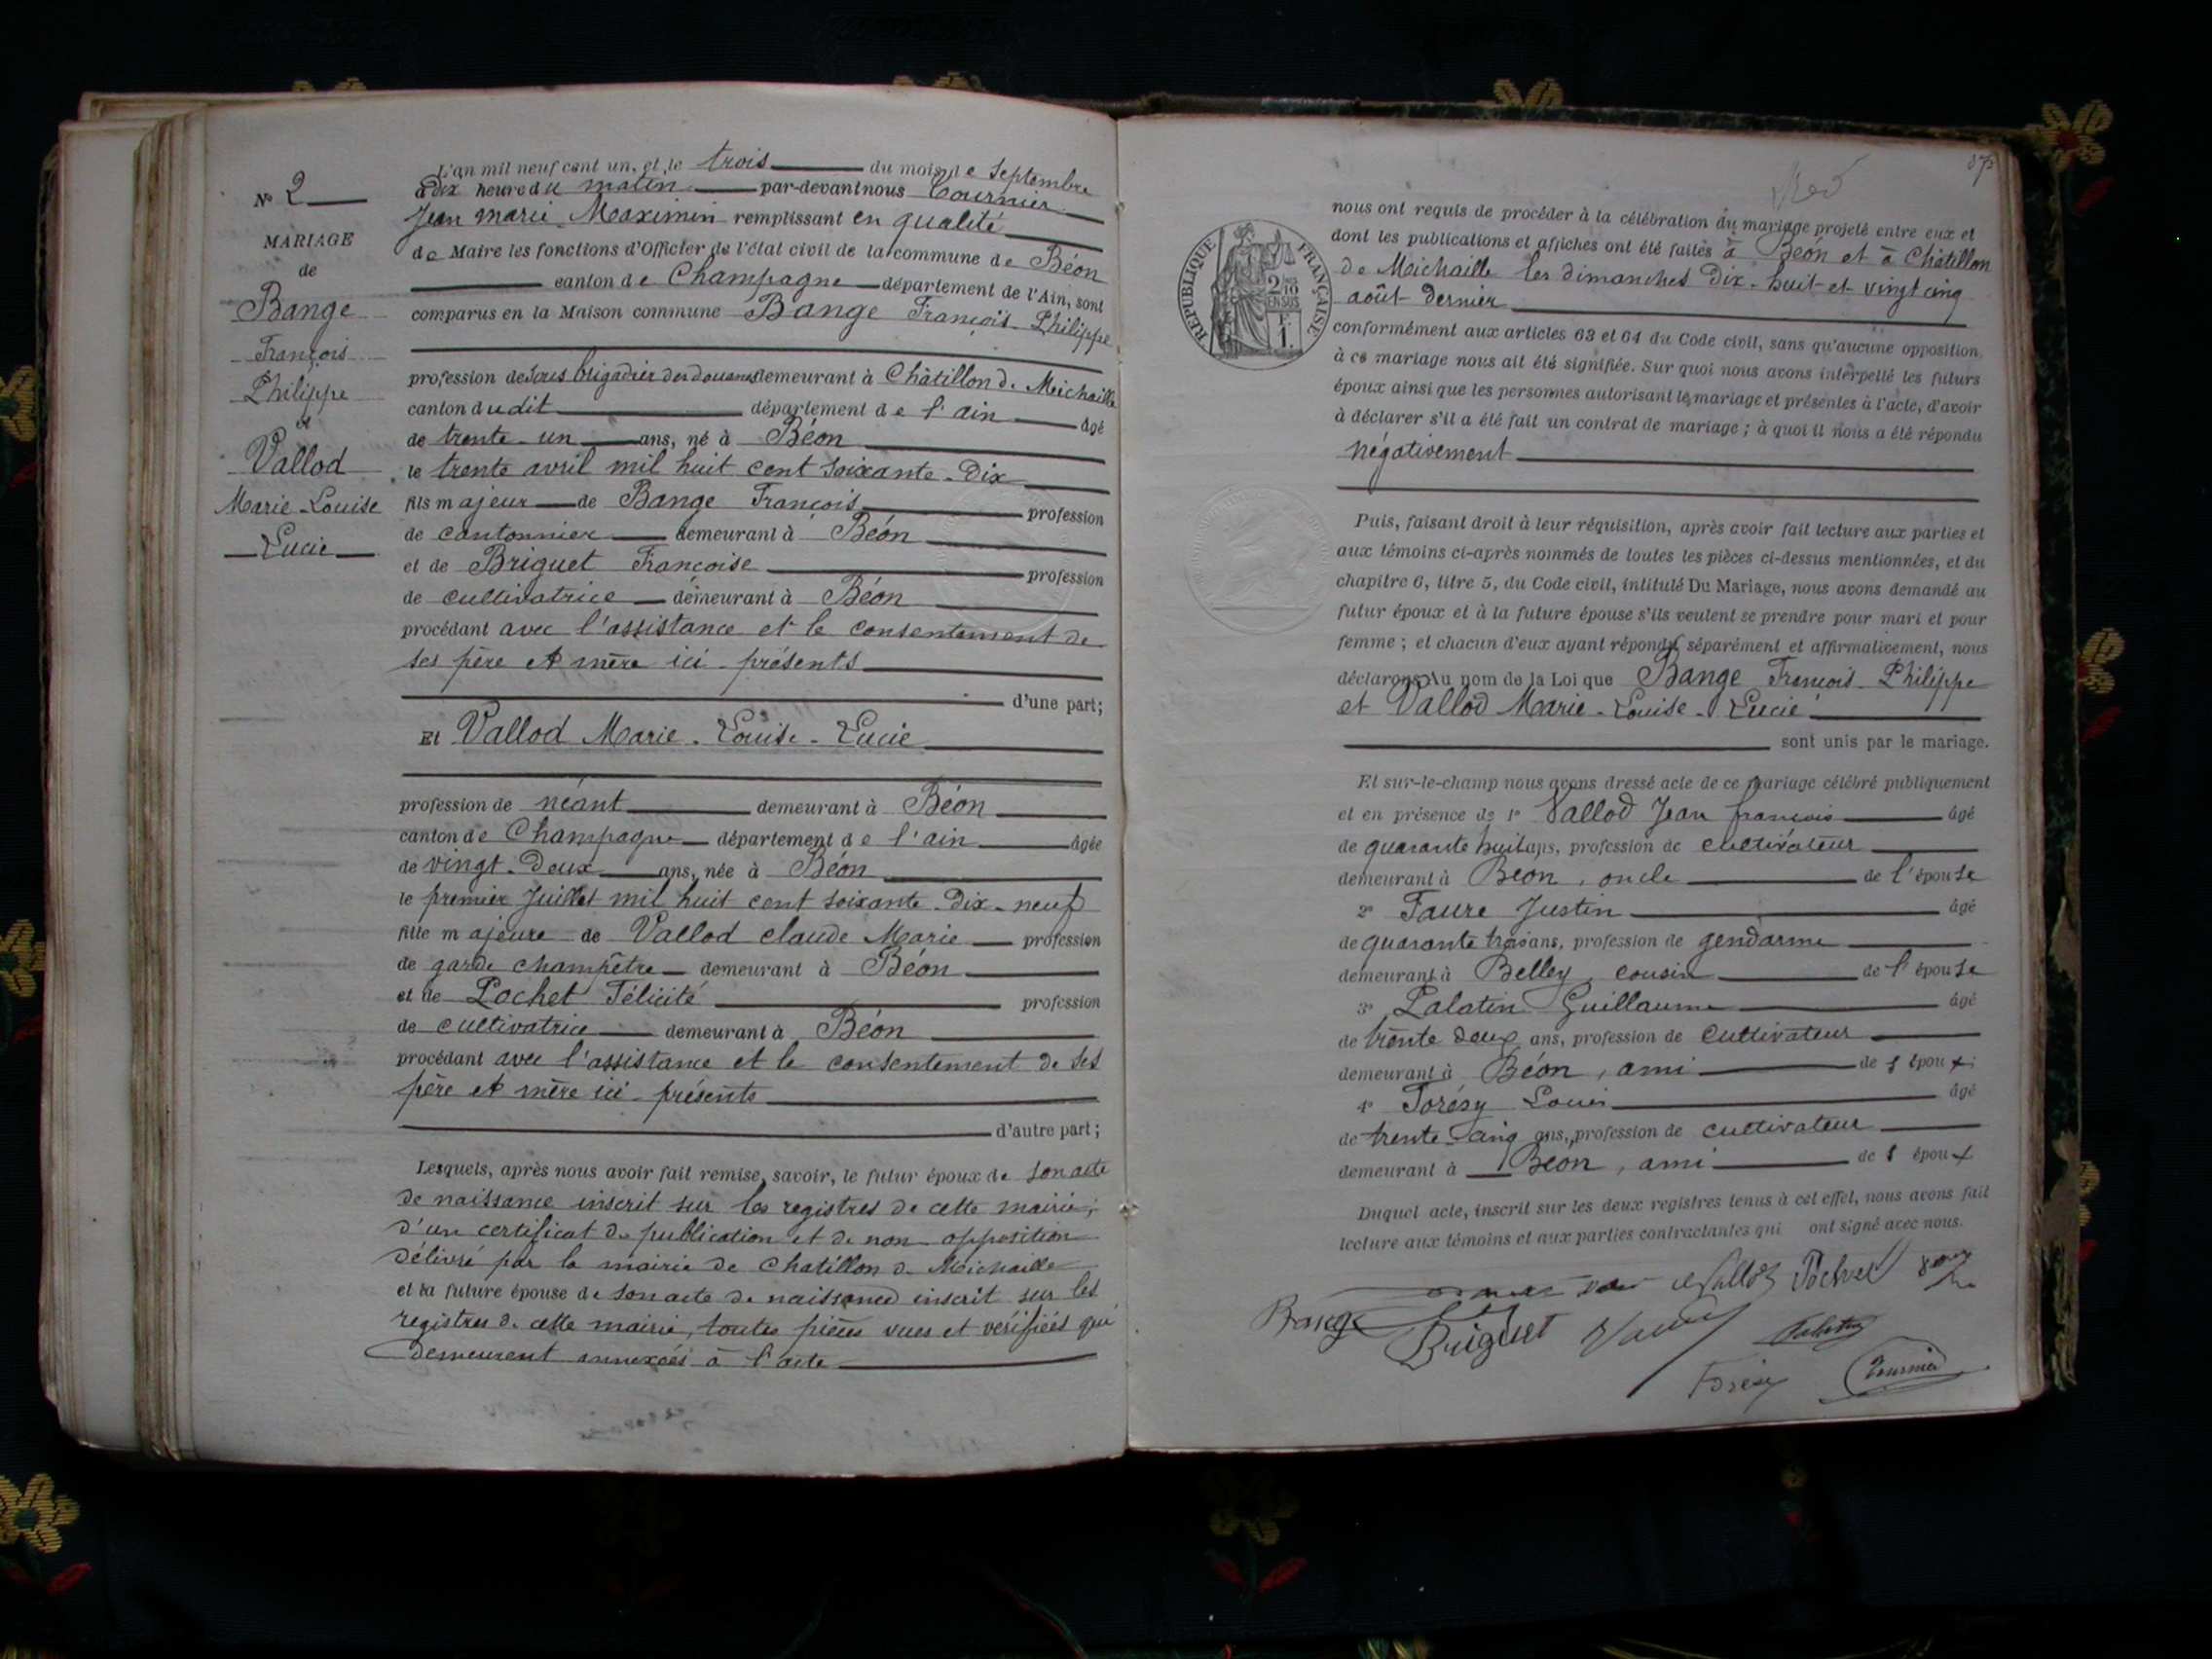 N° 2
MARIAGE
de
Bange
François
Philippe
et
Vallod
Marie-Louise
Lucie
L'an mil neuf cent un, et le trois du mois de Septembre
à dix heure du matin par-devant nous Tournier
Jean marie Maximin remplissant en qualité
de Maire les fonctions d'Officier de l'état civil de la commune de Béon
canton de Champagne département de l'Ain, sont
comparus en la Maison commune Bange François-Philippe
profession de sous brigadier des douanes demeurant à Châtillon d. Michaille
canton dudit département de l'ain âgé
de trente-un ans, né à Béon
le trente avril mil huit cent soixante-Dix
fils majeur de Bange François profession
de cantonnier demeurant à Béon
et de Briguet Françoise profession
de cultivatrice demeurant à Béon
procédant avec l'assistance et le consentement de
ses père et mère ici-présents
d'une part;
Et Vallod Marie-Louise-Lucie
profession de néant demeurant à Béon
canton de Champagne département de l'ain âgée
de vingt-Deux ans, née à Béon
le premier Juillet mil huit cent soixante-Dix-neuf
fille majeure de Vallod claude Marie profession
de garde champêtre demeurant à Béon
et de Pochet Félicité profession
de cultivatrice demeurant à Béon
procédant avec l'assistance et le consentement de ses
père et mère ici-présents
d'autre part;
Lesquels, après nous avoir fait remise, savoir, le futur époux de son acte
de naissance inscrit sur les registres de cette mairie;
d'un certificat de publication et de non opposition
délivré par la mairie de Chatillon d. Michaille
et la future épouse de son acte de naissance inscrit sur les
registres de cette mairie, toutes pièces vues et vérifiées qui
demeurent annexées à l'acte
RÉPUBLIQUE FRANÇAISE
2/10 EN SUS
1 F.
nous ont requis de procéder à la célébration du mariage projeté entre eux et
dont les publications et affiches ont été faites à Béon et à Châtillon
de Michaille les dimanches Dix-huit et vingt cinq
août dernier
conformément aux articles 63 et 64 du Code civil, sans qu'aucune opposition
à ce mariage nous ait été signifiée. Sur quoi nous avons interpellé les futurs
époux ainsi que les personnes autorisant le mariage et présentes à l'acte, d'avoir
à déclarer s'il a été fait un contrat de mariage; à quoi il nous a été répondu
négativement
Puis, faisant droit à leur réquisition, après avoir fait lecture aux parties et
aux témoins ci-après nommés de toutes les pièces ci-dessus mentionnées, et du
chapitre 6, titre 5, du Code civil, intitulé Du Mariage, nous avons demandé au
futur époux et à la future épouse s'ils veulent se prendre pour mari et pour
femme; et chacun d'eux ayant répondu séparément et affirmativement, nous
déclarons Au nom de la Loi que Bange François-Philippe
et Vallod Marie-Louise-Lucie
sont unis par le mariage.
Et sur-le-champ nous avons dressé acte de ce mariage célébré publiquement
et en présence de 1° Vallod Jean françois âgé
de quarante huit ans, profession de cultivateur
demeurant à Béon, oncle de l'épouse
2° Faure Justin âgé
de quarante trois ans, profession de gendarme
demeurant à Belley, cousin de l'épouse
3° Palatin Guillaume âgé
de trente deux ans, profession de cultivateur
demeurant à Béon, ami de l'époux
4° Forésy Louis âgé
de trente-cinq ans, profession de cultivateur
demeurant à Béon, ami de l'époux
Duquel acte, inscrit sur les deux registres tenus à cet effet, nous avons fait
lecture aux témoins et aux parties contractantes qui ont signé avec nous.
Vallod Pochet
Bange Briguet Palatin
Forésy Tournier